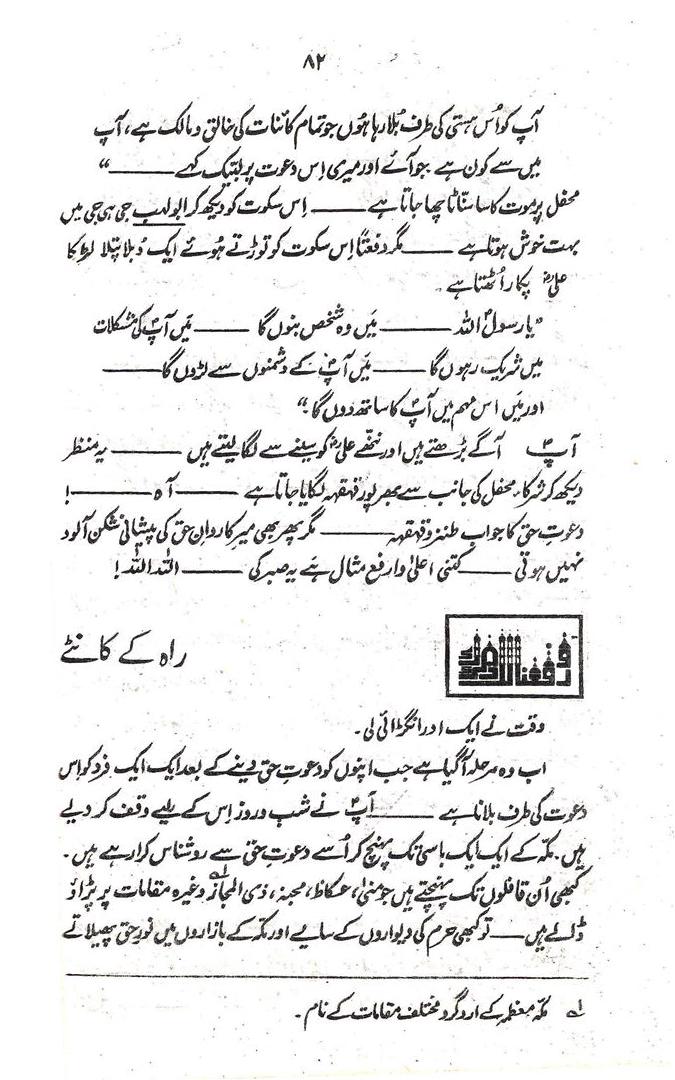 ۸۲
آپ کو اُس ہستی کی طرف بُلا رہا ہُوں جو تمام کائنات کی خالق و مالک ہے، آپ
میں سے کون ہے جو آئے اور میری اِس دعوت پر لبّیک کہے ——“
محفل پر موت کا سا سنّاٹا چھا جاتا ہے —— اِس سکوت کو دیکھ کر ابولہب جی ہی جی میں
بہت خوش ہوتا ہے —— مگر دفعتاً اِس سکوت کو توڑتے ہُوئے ایک دُبلا پتلا لڑکا
علیؓ پکار اُٹھتا ہے
”یا رسولؐ اللہ —— مَیں وہ شخص بنوں گا —— مَیں آپؐ کی مشکلات
میں شریک رہوں گا —— مَیں آپؐ کے دشمنوں سے لڑوں گا ——
اور مَیں اس مہم میں آپؐ کا ساتھ دوں گا۔“
آپؐ آگے بڑھتے ہیں اور ننھّے علیؓ کو سینے سے لگا لیتے ہیں —— یہ منظر
دیکھ کر شرکاءِ محفل کی جانب سے بھرپور قہقہہ لگایا جاتا ہے —— آہ ——!
دعوتِ حق کا جواب طنز و قہقہہ —— مگر پھر بھی میرِ کاروانِ حق کی پیشانی شکن آلود
نہیں ہوتی —— کتنی اعلیٰ و ارفع مثال ہے یہ صبر کی —— اللہ اللہ!
ورفعنا لک ذکرک
راہ کے کانٹے
وقت نے ایک اور انگڑائی لی۔
اب وہ مرحلہ آ گیا ہے جب اپنوں کو دعوتِ حق دینے کے بعد ایک ایک فرد کو اِس
دعوت کی طرف بلانا ہے —— آپؐ نے شب و روز اِس کے لیے وقف کر دیے
ہیں۔ مکّہ کے ایک ایک باسی تک پہنچ کر اُسے دعوتِ حق سے روشناس کرا رہے ہیں۔
کبھی اُن قافلوں تک پہنچتے ہیں جو منیٰ، عکاظ، مجنہ، ذی المجاز؂۱ وغیرہ مقامات پر پڑاؤ
ڈالے ہیں —— تو کبھی حرم کی دیواروں کے سایے اور مکّہ کے بازاروں میں نورِ حق پھیلاتے
؂۱ مکّہ معظمہ کے اردگرد مختلف مقامات کے نام۔